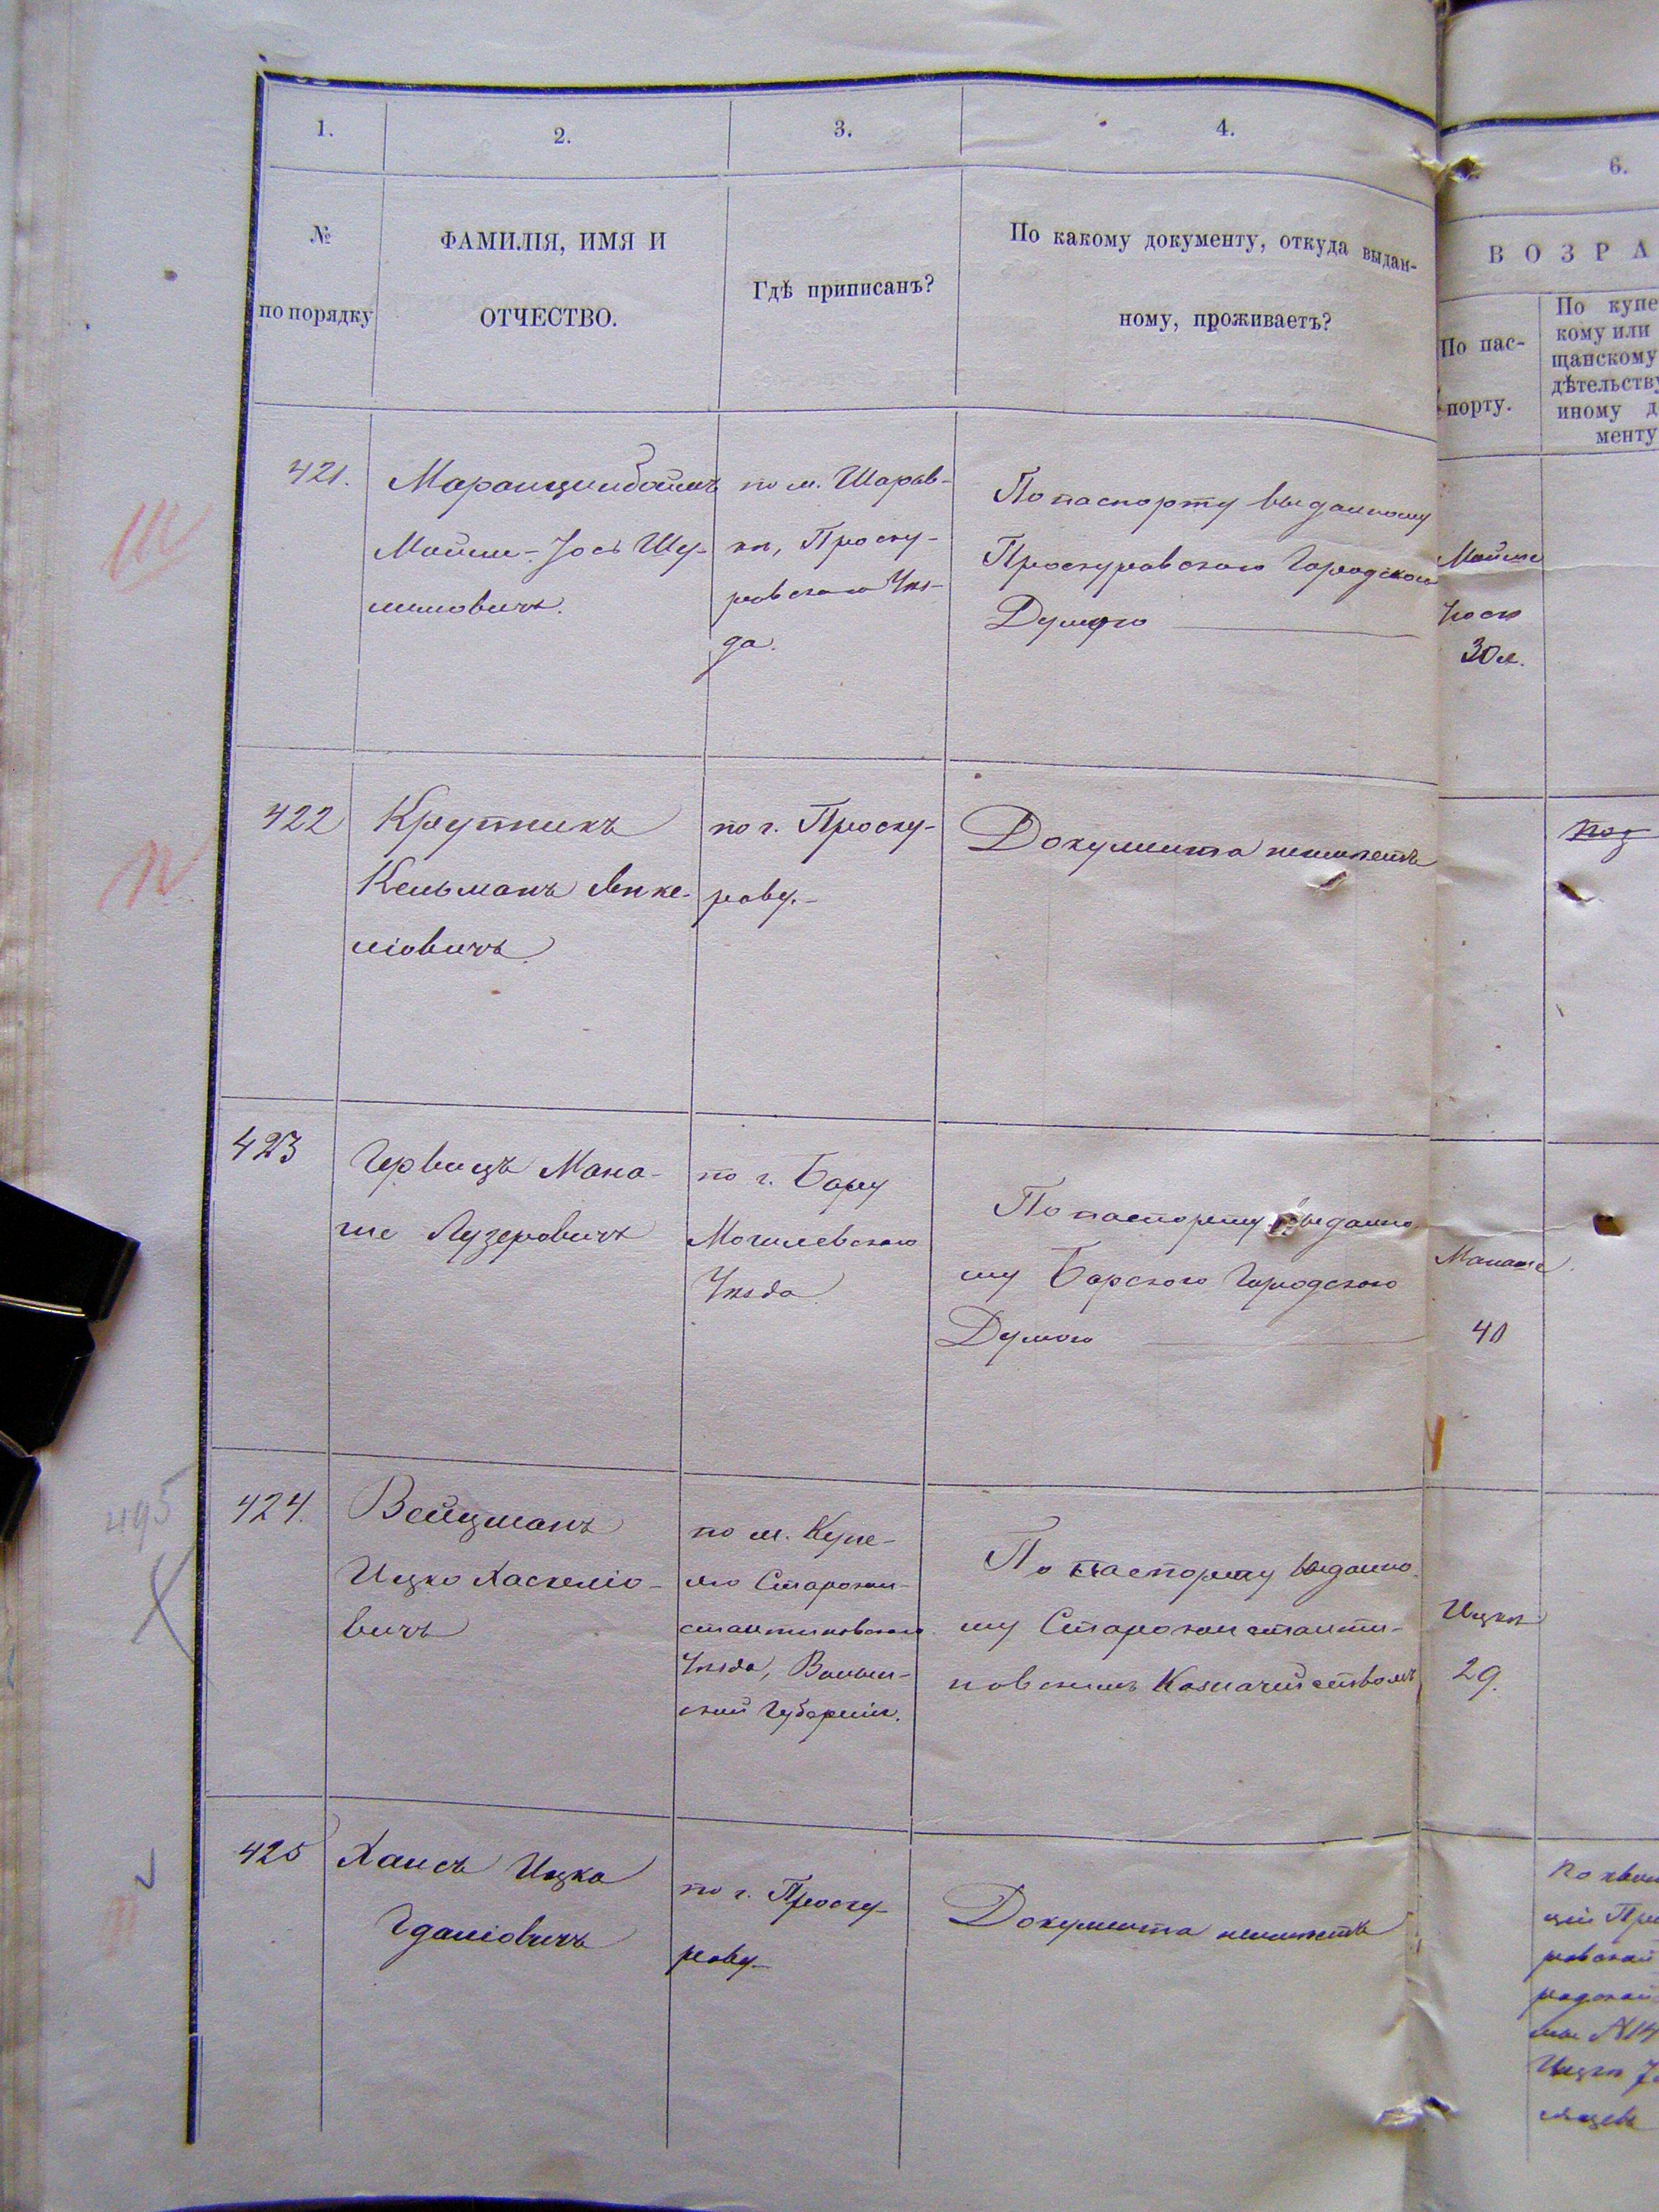 1.
2.
3.
4.
6.
№
по порядку
ФАМИЛІЯ, ИМЯ И
ОТЧЕСТВО.
Гдѣ приписанъ?
По какому документу, откуда выдан-
ному, проживаетъ?
ВОЗРА
По пас-
порту.
По купе
кому или
щанскому
дѣтельству
иному д
менту
421.
Мойше-Іось Шу-
лимовичъ.
по м. Шарав-
кѣ, Проску-
ровскаго Уѣз-
да.
По паспорту выданному
Проскуровскою Городскою
Думою
Мойше
Іось
30 л.
422
Крутникъ
Кельманъ Янке-
ліовичъ
по г. Проску-
рову.
Документа неимеетъ
423
Гервицъ Мана-
ше Лузеровичъ
по г. Бару
Могилевскаго
Уѣзда
По паспорту выданно
му Барскою Городскою
Думою
Манаше
40
495
424.
Вейцманъ
Ицко Хаскеліо-
вичъ
по м. Купе-
лю Старокон-
стантиновскаго
Уѣзда, Волын-
ской Губерніи.
По паспорту выданно
му Староконстанти-
новскимъ Казначействомъ
Ицко
29.
425
Хаисъ Ицко
по г. Проску-
рову
Документа неимеетъ